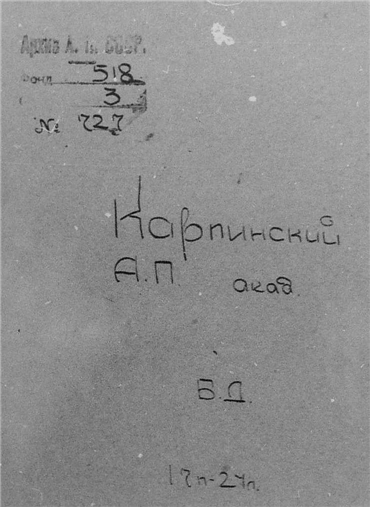 Архив А. Н. СССР.
Фонд 518
3
№ 727
Карпинский
А.П. акад.
Б.Д.